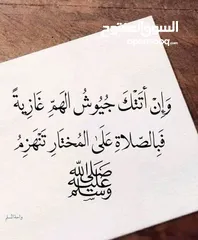 السوق المفتوح
وَإِن أَتَتْكَ جُيُوشُ الهَمِّ غَازِيةً
فَبِالصَّلاةِ عَلَى المُختَارِ تَنْهَزِمُ
صَلَّى اللّٰه
عَلَيْهِ وَسَلَّم